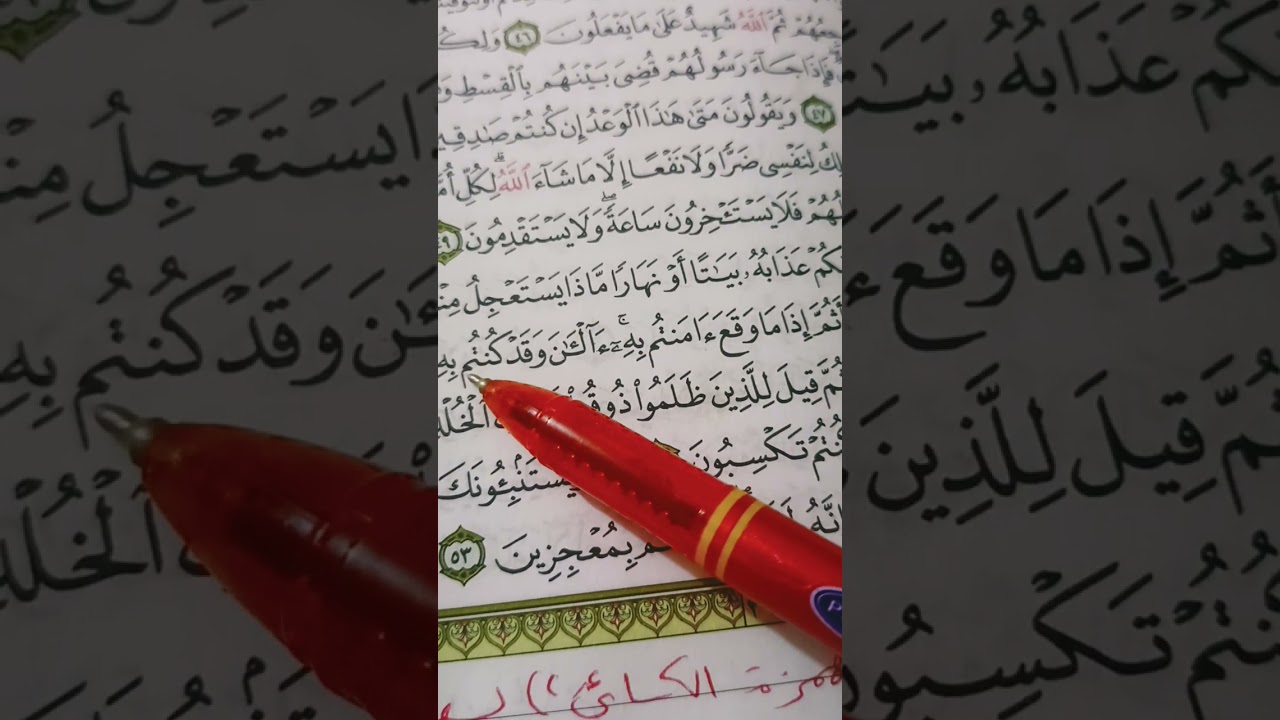 جِعُهُمْ ثُمَّ ٱللَّهُ شَهِيدٌ عَلَىٰ مَا يَفْعَلُونَ ٤٦ وَلِكُ
فَإِذَا جَآءَ رَسُولُهُمْ قُضِىَ بَيْنَهُم بِٱلْقِسْطِ وَ
٤٧ وَيَقُولُونَ مَتَىٰ هَٰذَا ٱلْوَعْدُ إِن كُنتُمْ صَٰدِقِي
لِكُ لِنَفْسِى ضَرًّا وَلَا نَفْعًا إِلَّا مَا شَآءَ ٱللَّهُ ۗ لِكُلِّ أُمَّ
لُهُمْ فَلَا يَسْتَـْٔخِرُونَ سَاعَةً ۖ وَلَا يَسْتَقْدِمُونَ ٤٩
كُمْ عَذَابُهُۥ بَيَٰتًا أَوْ نَهَارًا مَّاذَا يَسْتَعْجِلُ مِنْ
أَثُمَّ إِذَا مَا وَقَعَ ءَامَنتُم بِهِۦٓ ۚ ءَآلْـَٰٔنَ وَقَدْ كُنتُم بِهِ
ثُمَّ قِيلَ لِلَّذِينَ ظَلَمُوا۟ ذُوقُ ٱلْخُلْدِ
كُنتُمْ تَكْسِبُونَ يَسْتَنۢبِـُٔونَكَ
إِنَّهُۥ لَ بِمُعْجِزِينَ ٥٣
همزة الكسائي